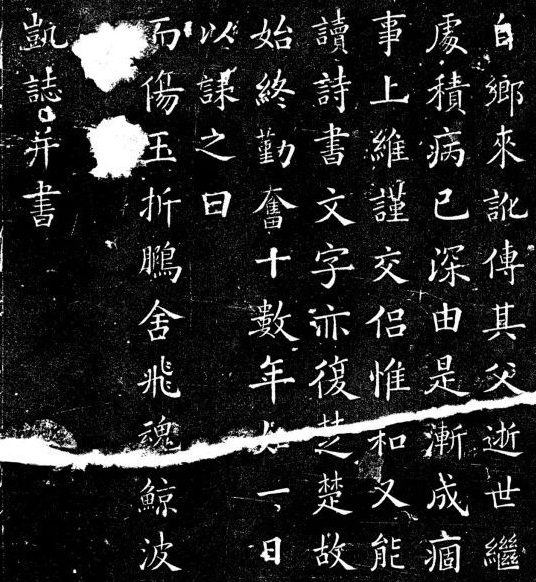 自鄉來訛傳其父逝世繼
處積病已深由是漸成痼
事上維謹交侶惟和又能
讀詩書文字亦復楚楚故
始終勤奮十數年如一日
以誄之曰
而傷玉折鵬舍飛魂鯨波
凱誌并書